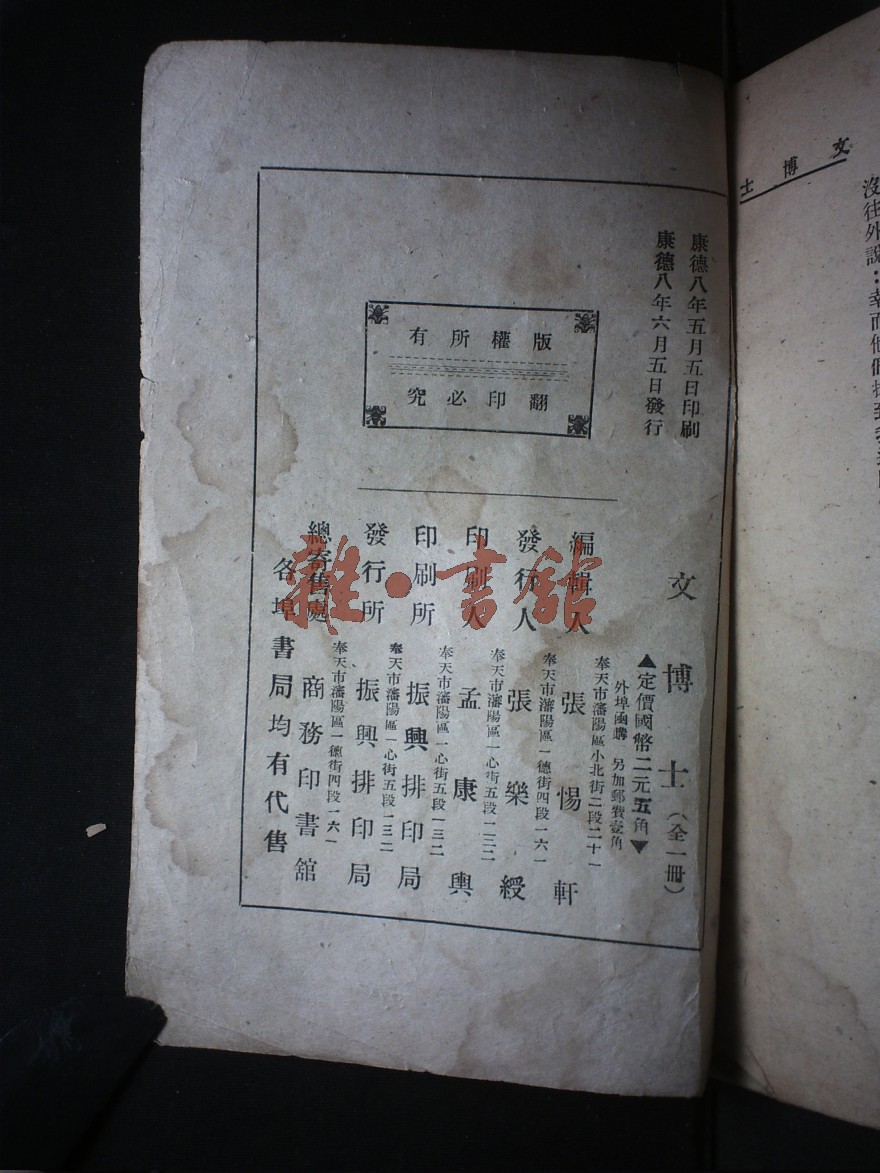 文博士
沒往外說：幸而他們
康德八年五月五日印刷
康德八年六月五日發行
版權所有
翻印必究
文博士（全一冊）
▲定價國幣二元五角▼
外埠函購 另加郵費壹角
奉天市瀋陽區小北街二段二十一
編輯人 張惕軒
奉天市瀋陽區一德街四段一六一
發行人 張樂綬
奉天市瀋陽區一心街五段一三二
印刷人 孟康輿
奉天市瀋陽區一心街五段一三二
印刷所 振興排印局
奉天市瀋陽區一心街五段一三二
發行所 振興排印局
奉天市瀋陽區一德街四段一六一
總寄售處 商務印書館
各埠書局均有代售
雜·書館